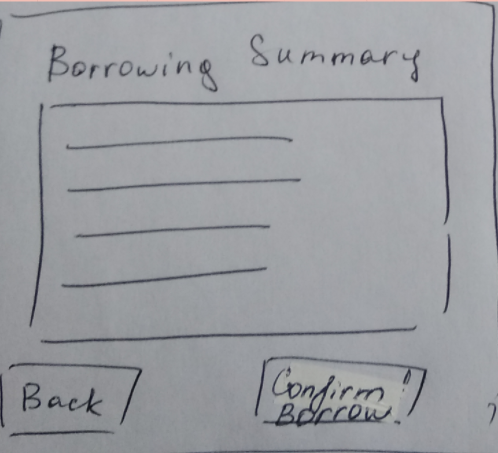 Borrowing Summary
Back
Confirm
Borrow.